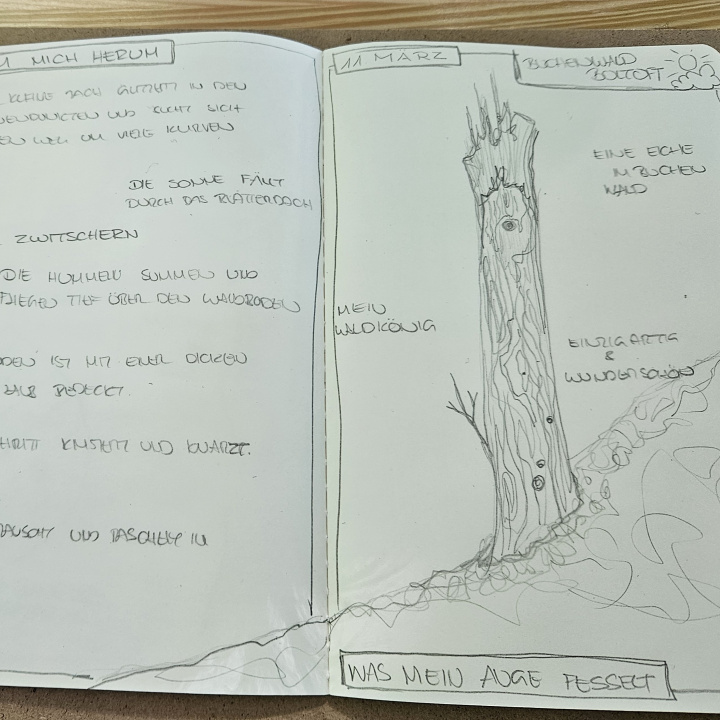 MICH HERUM
KLEINE BACH GLITZERT IN DEN
UND SUCHT SICH
WEG UM VIELE KURVEN
DIE SONNE FÄLLT
DURCH DAS BLÄTTERDACH
ZWITSCHERN
DIE HUMMELN SUMMEN UND
FLIEGEN TIEF ÜBER DEN WALDBODEN
IST MIT EINER DICKEN
BEDECKT.
KNISTERT UND KNARZT.
UND RASCHELT IN
11 MÄRZ
BUCHENWALD
BOLTOFT
EINE EICHE
IM BUCHEN
WALD
MEIN
WALDKÖNIG
EINZIGARTIG
&
WUNDERSCHÖN
WAS MEIN AUGE FESSELT